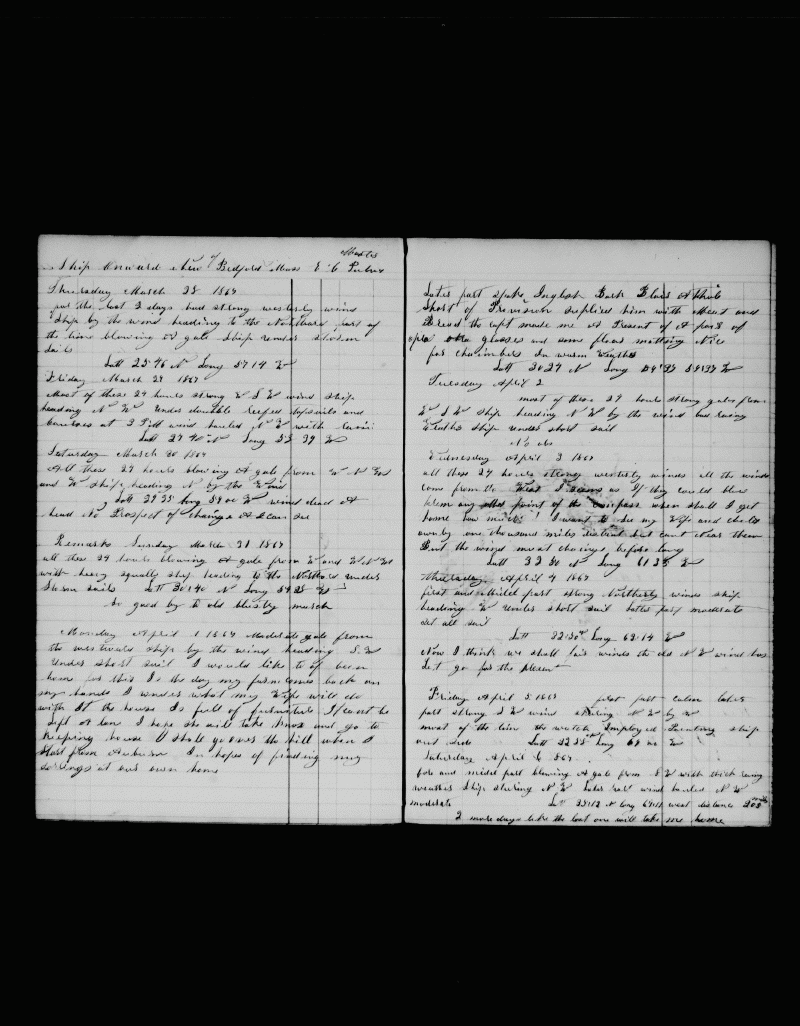 Master
Ship Onward New Bedford Mass E C Pulver
Thursday March 28 1867
for the last 2 days had strong westerly wind
Ship by the wind heading to the Northard part of
the time blowing A gale Ship under storm
sails
Latt 25 46 N Long 57 14 W
Friday March 29 1867
Most of these 24 hours strong W S W wind ship
heading N W under double reefed topsails and
courses at 2 wind hauled N W with rain
Latt 27 40 N Long 58 39 W
Saturday March 30 1867
All these 24 hours blowing A gale from W N W
and W ship heading N by the Wind
Latt 29 25 Long 59 00 W wind dead A
head No Prospect of change A I can see
Remarks Sunday March 31 1867
all these 24 hours blowing A gale from W and W N W
with heavy squalls ship heading to the Northard under
Storm sails Latt 30 40 N Long 59 25 W
So good by to old blusty march
Monday April 1 1867 Moderate gale from
the westward ship by the wind heading S W
Under short sail I would like to of been
home for this Is the day my farm comes back on
my hands I wonder what my Wife will do
with It the house Is full of furniture If cant be
left or lone I hope she will take and go to
keeping house I shall go over the hill when I
start from Auburn In hopes of finding my
darlings at our own home
Later part spoke English Bark
Short of Provision suplied him with Meat and
Bread the Capt made me A Present of A pair of
opra glasses and some floor matting Nice
for chaimbers In warm Weather
Latt 30 29 N Long 59 37 W
Tuesday April 2
most of these 24 hours strong gales from
W S W Ship heading N W by the wind and rainy
Weather ship under short sail
No obs
Wednesday April 3 1867
all these 24 hours strong westerly winds all the winds
come from the West I seems as If they could blow
from any other point of the Compass when shall I get
home how much I want to see my Wife and childs
only one thousand miles distent but cant near them
But the wind must change before long
Latt 32 30 N Long 61 25 W
Thursday April 4 1867
first and middel part strong Northerly winds ship
heading W under short sail later part moderate
set all sail
Latt 32 30 Long 63 14 W
Now I think we shall fair winds the old N W wind has
let go for the present
Friday April 5 1867 first part calm later
part strong S W wind stering N W by W
most of the time the watch Imployed Painting ship
out side Latt 32 35 Long 65 00 W
Saturday April 6 1867
fore and middel part blowing A gale from S W with thick rainy
weather Ship stering N W Later part wind hauled N W
moderate Latt 35 12 N Long 67 11 west distance 208 miles
2 more days like the last one will take me home